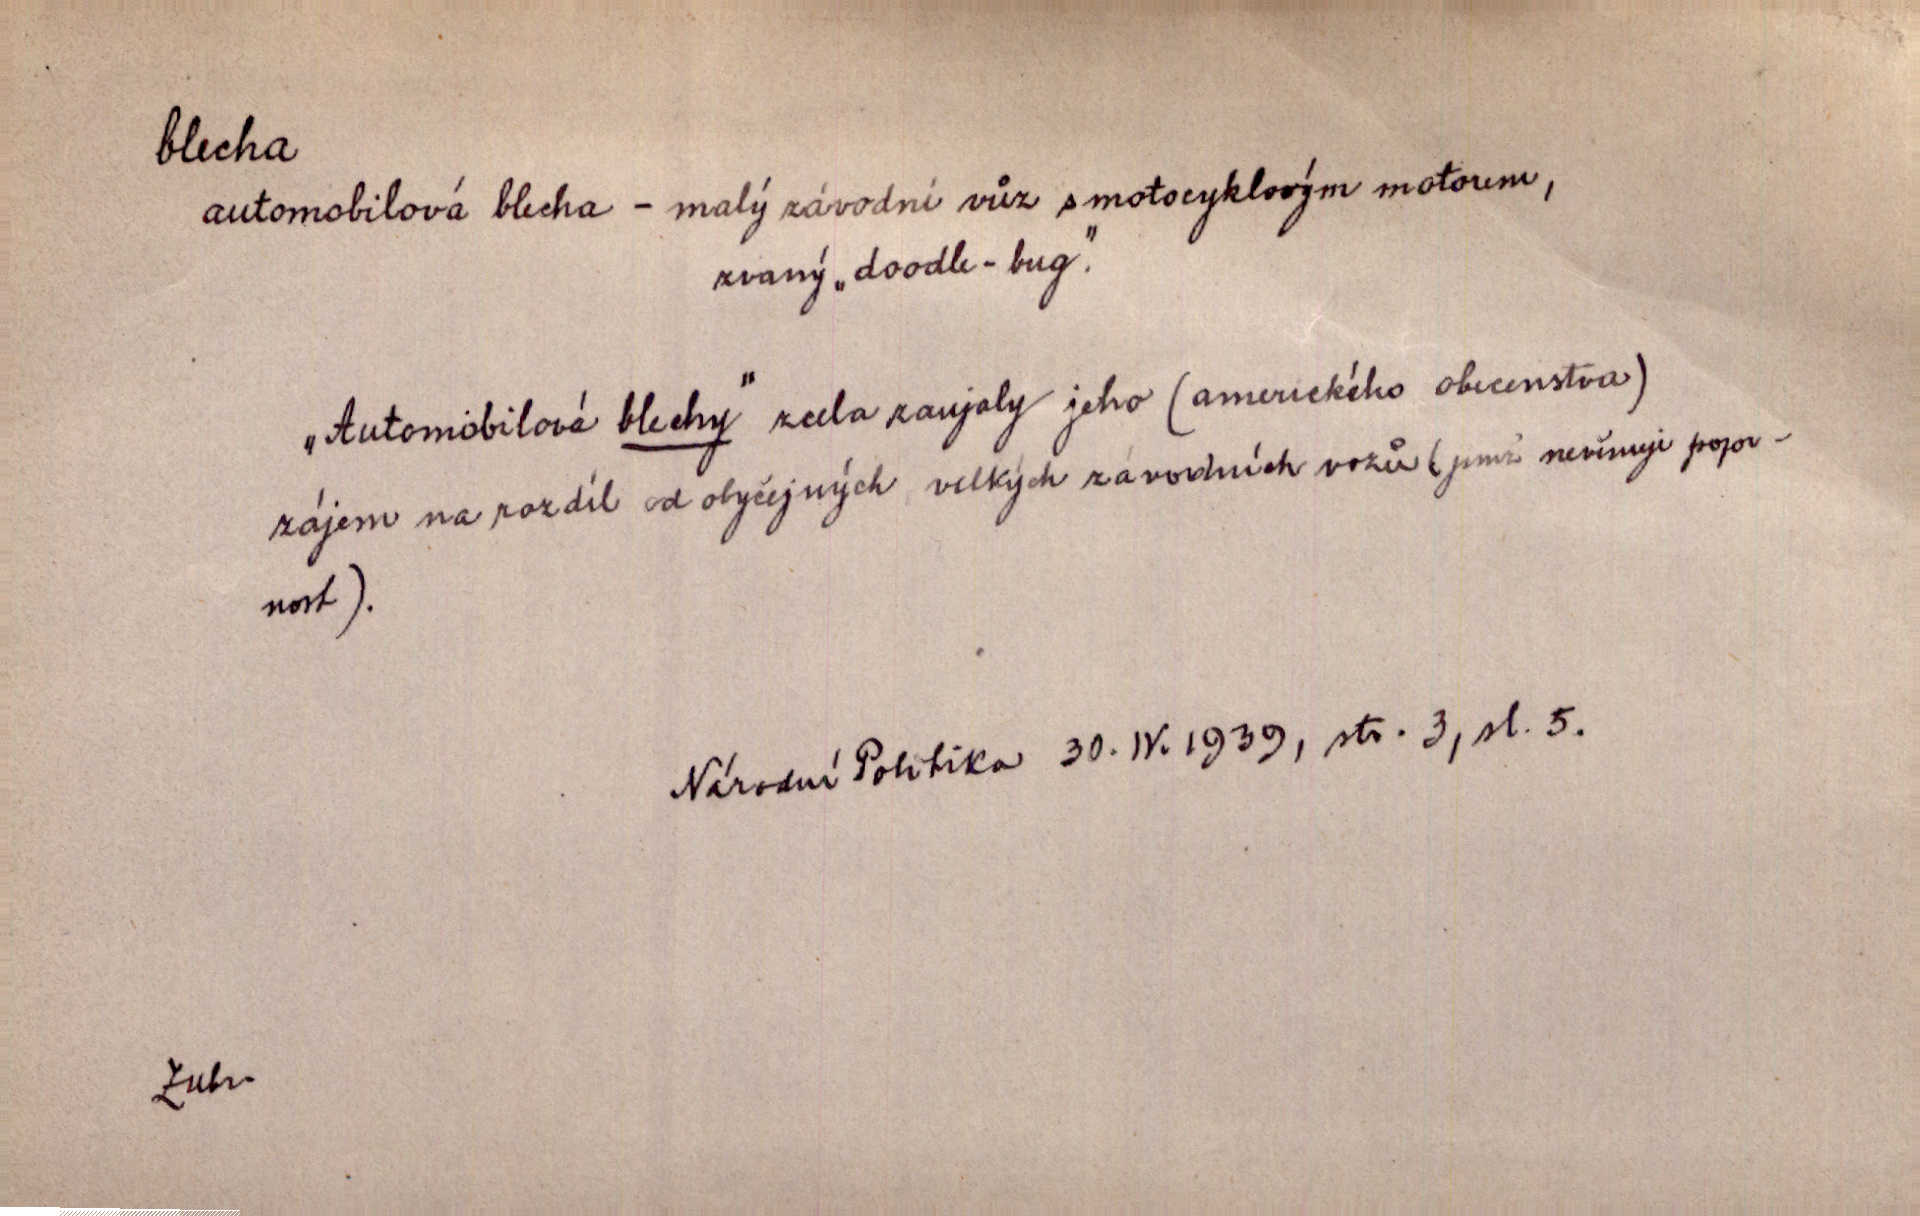 blecha
automobilová blecha – malý závodní vůz s motocyklovým motorem,
zvaný „doodle-bug".
„Automobilová blechy" zcela zaujaly jeho (amerického obecenstva)
zájem na rozdíl od obyčejných velkých závodních vozů (jimž nevěnuje pozor-
nost).
Národní Politika 30. IV. 1939, str. 3, sl. 5.
Zubr